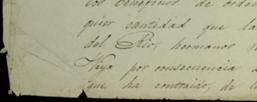 los beneficios de orden
quier cantidad que la
del Rio, hermanos
Haya por consecuencia
que ha contraido, de